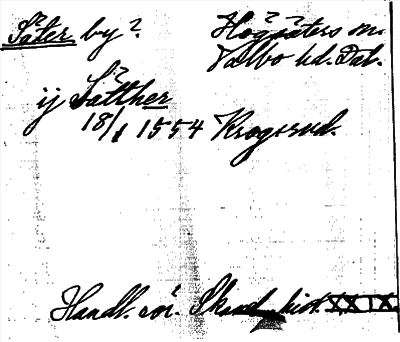 Säter by? Högsäters sn.
Valbo hd. Dal.
ij Sätther
18/1 1554 Krogsrud.
Handl. rör. Skand. hist. XXIX.